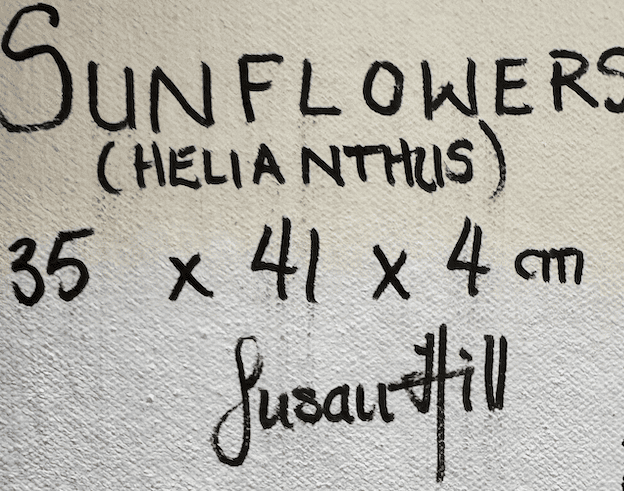 SUNFLOWERS
(HELIANTHUS)
35 x 41 x 4 cm
Susan Hill